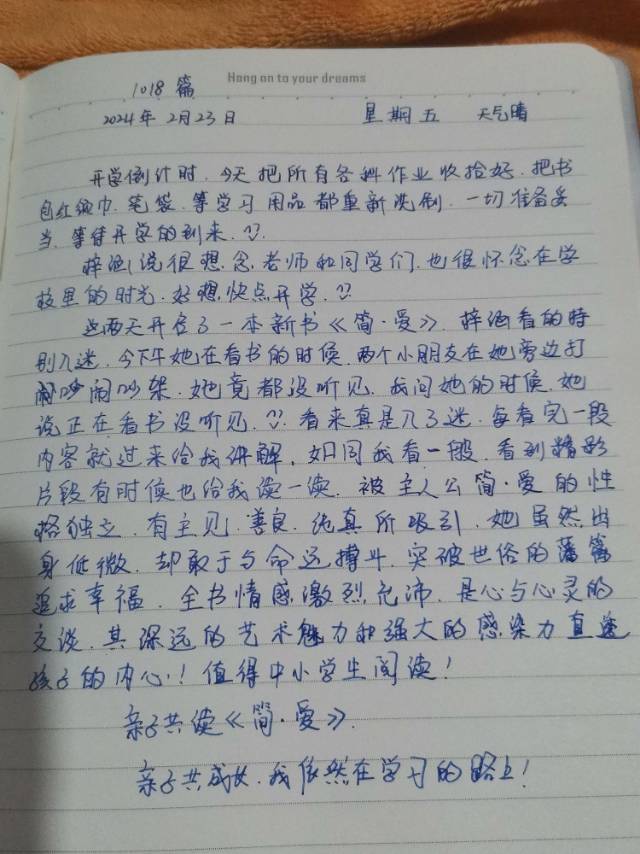 Hang on to your dreams
1018 篇
2024年 2月23日 星期五 天气晴
开学倒计时. 今天把所有各科作业收拾好. 把书
包红领巾. 笔袋. 等学习用品都重新洗刷. 一切准备妥
当. 等待开学的到来.
梓涵说很想念老师和同学们. 也很怀念在学
校里的时光. 好想快点开学.
这两天开启了一本新书《简·爱》. 梓涵看的特
别入迷. 今下午她在看书的时候. 两个小朋友在她旁边打
闹吵闹吵架. 她竟都没听见. 我问她的时候. 她
说正在看书没听见. 看来真是入了迷. 每看完一段
内容就过来给我讲解. 如同我看一般. 看到精彩
片段有时候也给我读一读. 被主人公简·爱的性
格独立. 有主见. 善良. 纯真所吸引. 她虽然出
身低微. 却敢于与命运搏斗. 突破世俗的藩篱
追求幸福. 全书情感激烈充沛. 是心与心灵的
交谈. 其深远的艺术魅力和强大的感染力直达
孩子的内心! 值得中小学生阅读!
亲子共读《简·爱》.
亲子共成长. 我依然在学习的路上!